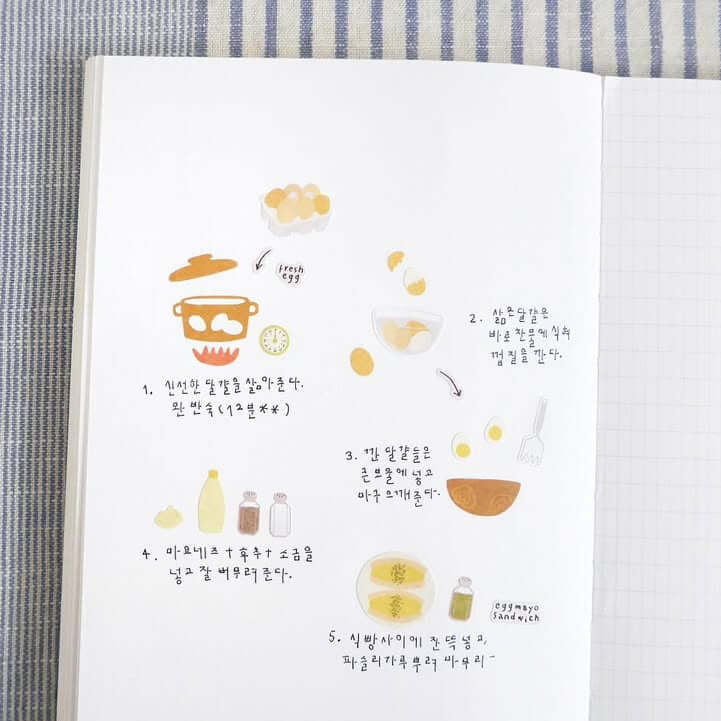 fresh
egg
1. 신선한 달걀을 삶아준다.
완 반숙(12분**)
2. 삶은달걀은
바로찬물에식혀
껍질을깐다.
3. 깐 달걀들은
큰브울에넣고
마구으깨준다.
4. 마요네즈 + 후추 + 소금을
넣고잘버무려준다.
eggmayo
sandwich
5. 식빵사이에 잔뜩넣고,
파슬리가루뿌려 마무리-